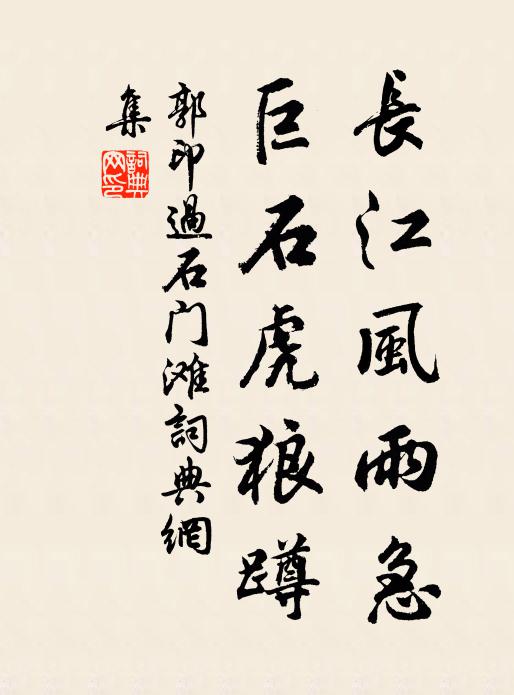 長江風雨急
巨石虎狼蹲
郭印過石门滩詞典網
集
詞典
网印